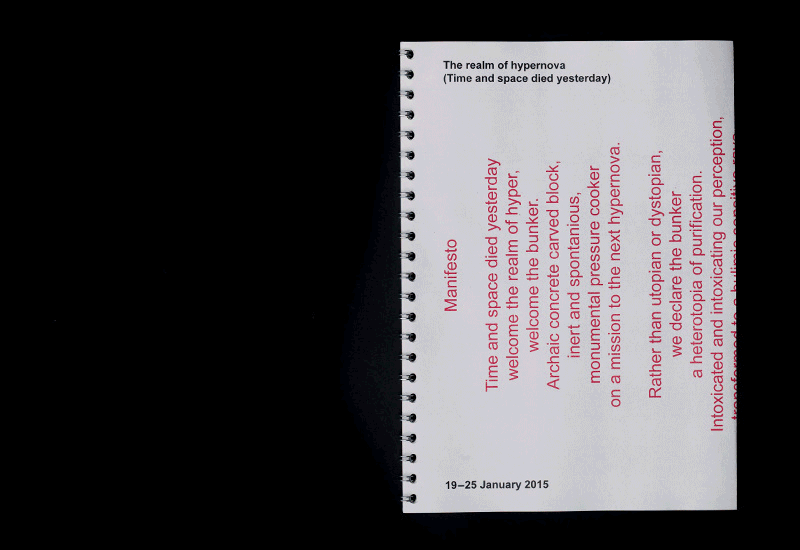 The realm of hypernova
(Time and space died yesterday)
Manifesto
Time and space died yesterday
welcome the realm of hyper,
welcome the bunker.
Archaic concrete carved block,
inert and spontanious,
monumental pressure cooker
on a mission to the next hypernova.
Rather than utopian or dystopian,
we declare the bunker
a heterotopia of purification.
Intoxicated and intoxicating our perception,
transformed to a bulimic sensitive rave
19–25 January 2015